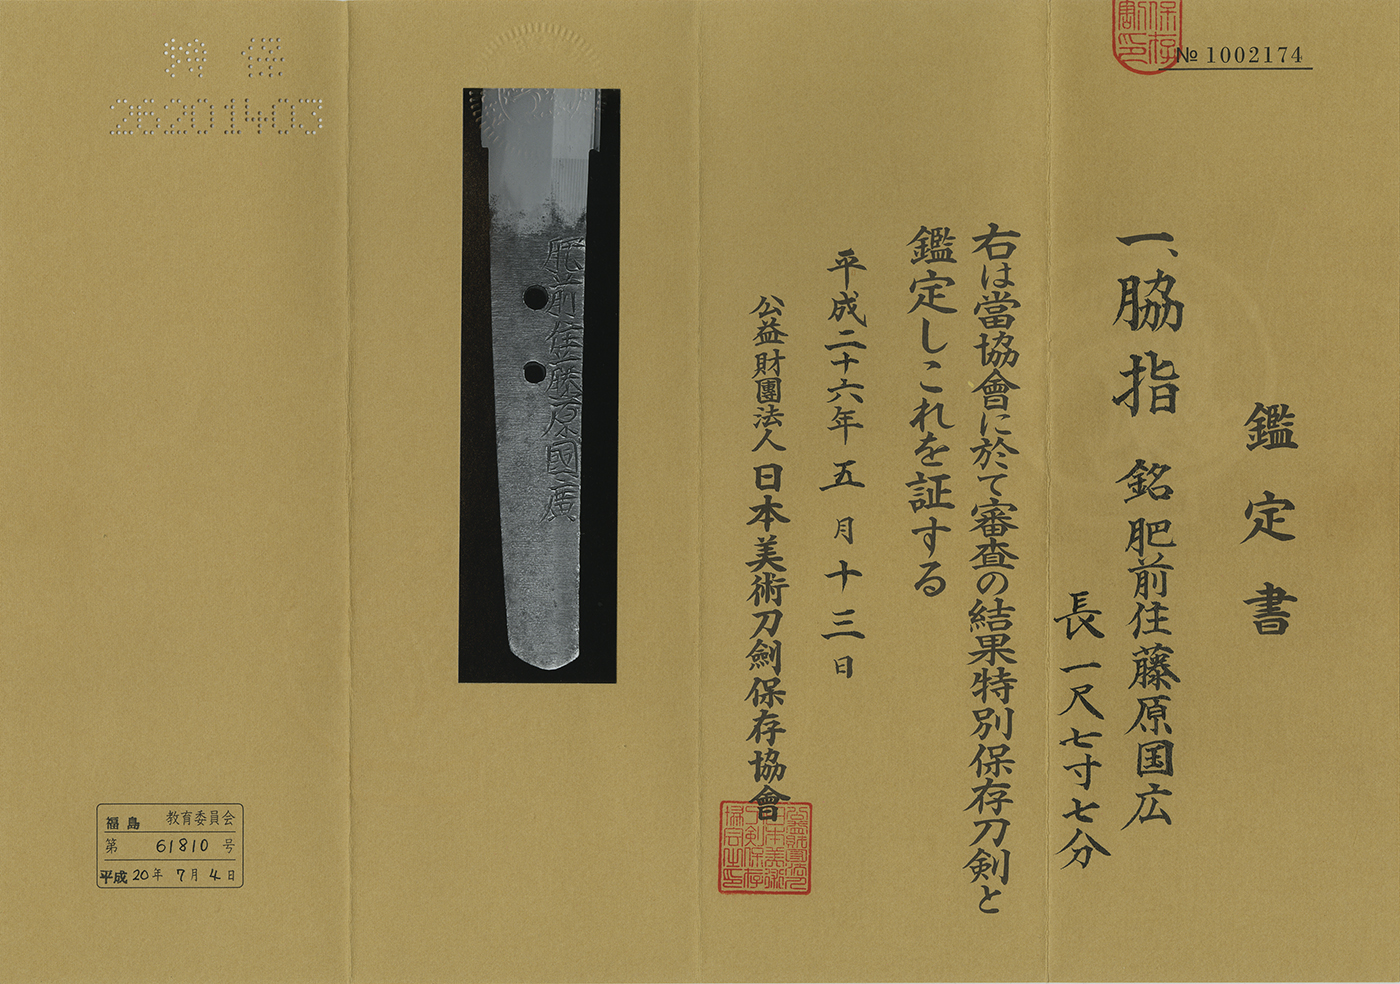 № 1002174
鑑定書
一、脇指 銘 肥前住藤原国広
長一尺七寸七分
右は當協會に於て審査の結果特別保存刀剣と
鑑定しこれを証する
平成二十六年五月十三日
公益財團法人日本美術刀劍保存協會
肥前住藤原國廣
26201403
福島 教育委員会
第 61810 号
平成 20年 7月 4日